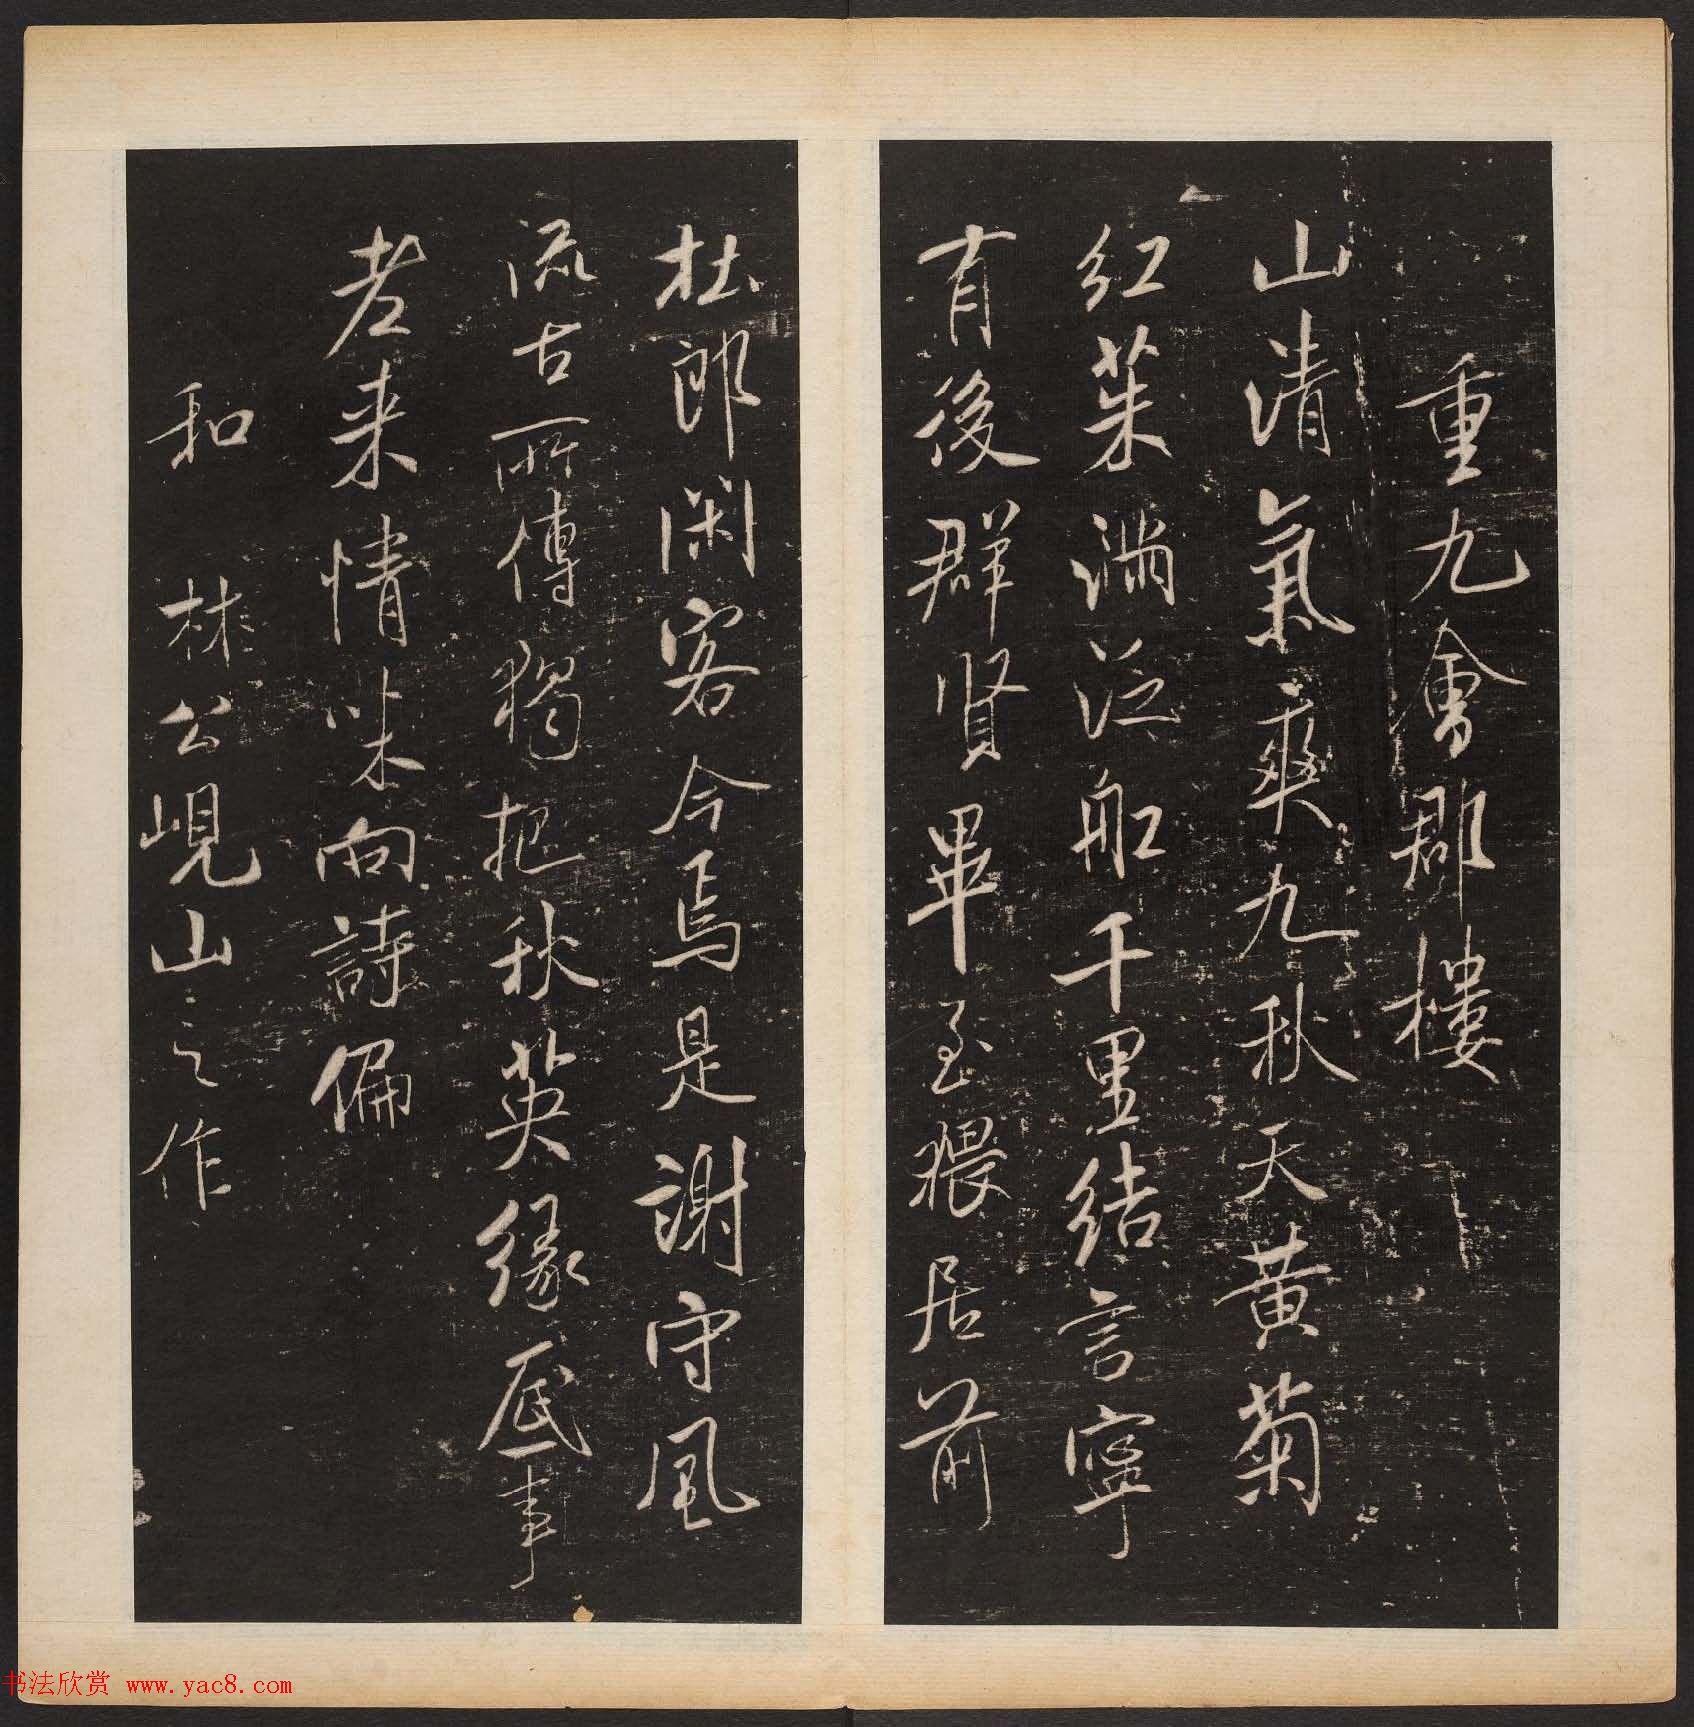 重九會郡樓
山清氣爽九秋天黃菊
紅茱滿泛船千里結言寧
有後群賢畢至猥居前
杜郎閑客今焉是謝守風
流古所傳獨把秋英緣底事
老来情味向詩偏
和林公峴山之作
书法欣赏 www.yac8.com